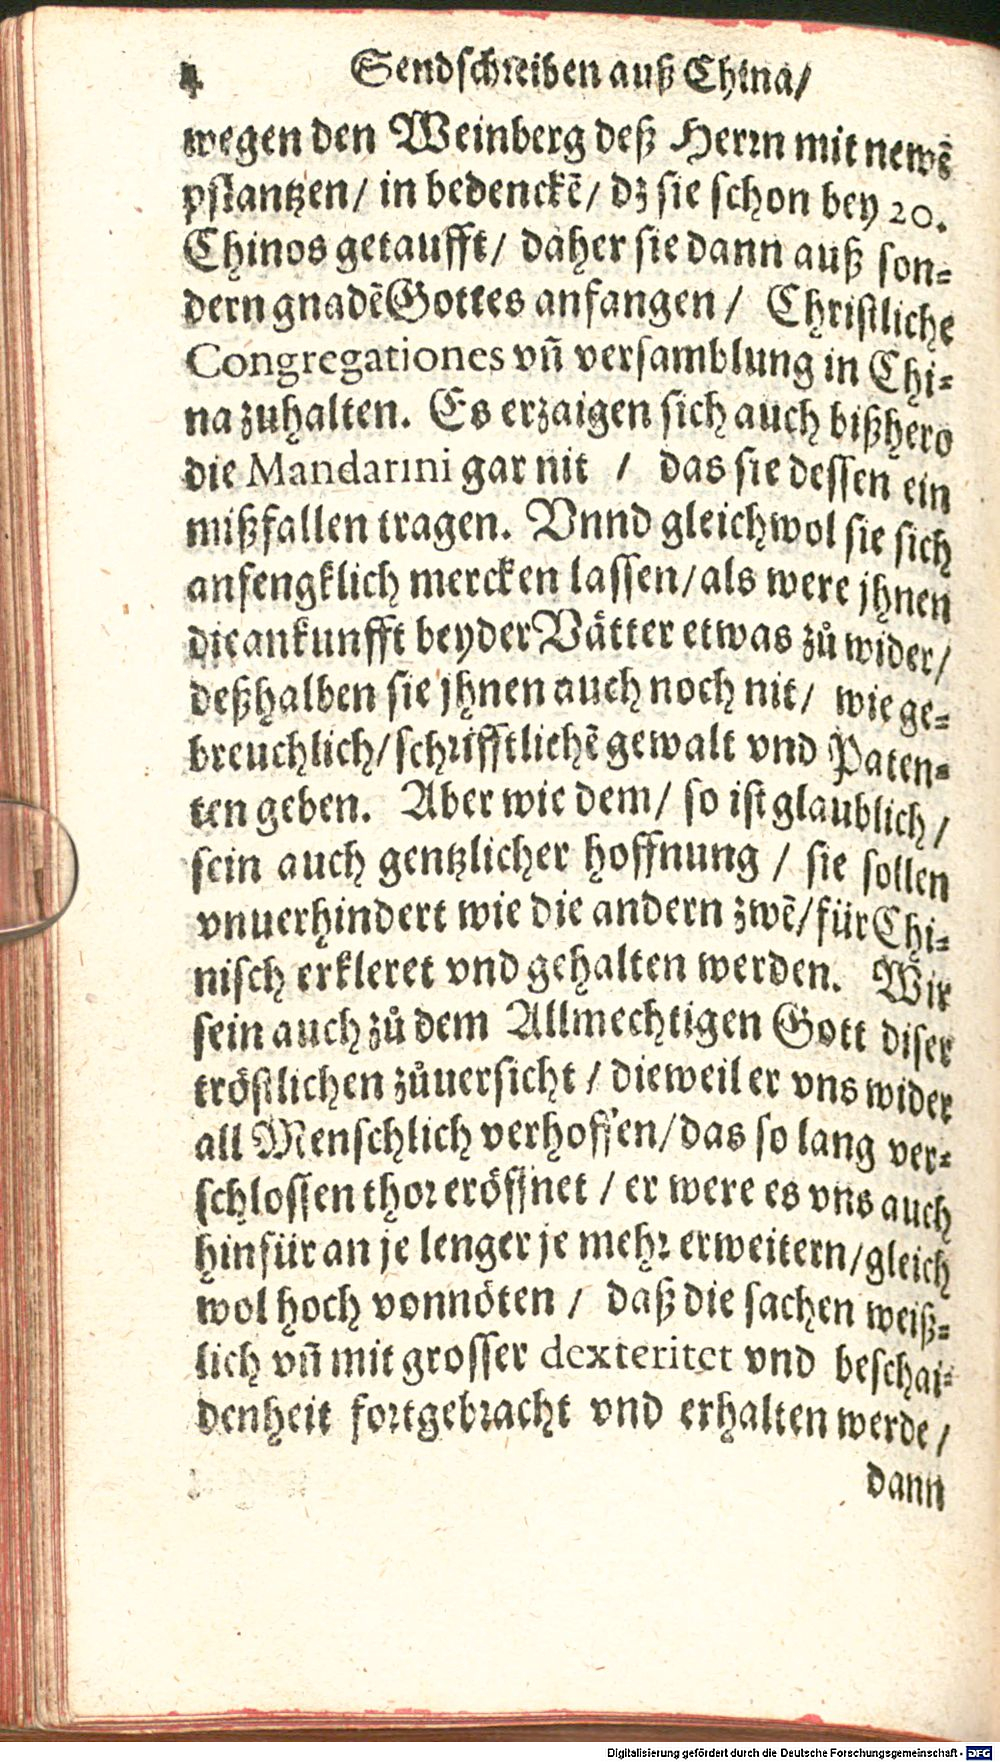 4 Sendschreiben auß China/
wegen den Weinberg deß Herrn mit newē
pflantzen/ in bedenckē/ dz sie schon bey 20.
Chinos getaufft/ daher sie dann auß son-
dern gnadē Gottes anfangen/ Christliche
Congregationes vñ versamblung in Chi-
na zuhalten. Es erzaigen sich auch bißhero
die Mandarini gar nit / das sie dessen ein
mißfallen tragen. Vnnd gleichwol sie sich
anfengklich mercken lassen/ als were jhnen
die ankunfft beyder Vätter etwas zů wider/
deßhalben sie jhnen auch noch nit/ wie ge-
breuchlich/ schrifftlichē gewalt vnd Paten-
ten geben. Aber wie dem/ so ist glaublich/
sein auch gentzlicher hoffnung / sie sollen
vnuerhindert wie die andern zwē/ für Chi-
nisch erkleret vnd gehalten werden. Wir
sein auch zů dem Allmechtigen Gott diser
tröstlichen zůuersicht / dieweil er vns wider
all Menschlich verhoffen/ das so lang ver-
schlossen thor eröffnet / er were es vns auch
hinfür an je lenger je mehr erweitern/ gleich
wol hoch vonnöten / daß die sachen weiß-
lich vñ mit grosser dexteritet vnd beschai-
denheit fortgebracht vnd erhalten werde/
dann
Digitalisierung gefördert durch die Deutsche Forschungsgemeinschaft - DFG